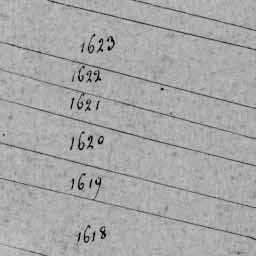 1623
1622
1621
1620
1619
1618